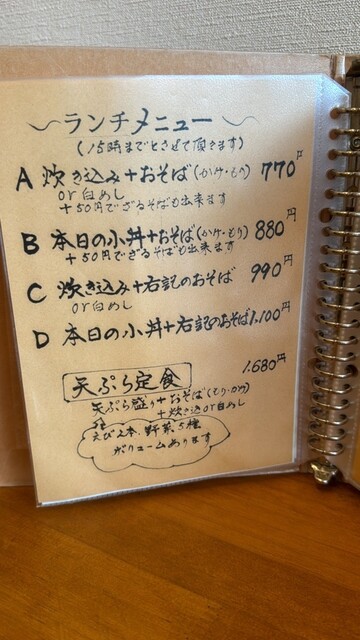 ～ランチメニュー～
(15時までとさせて頂きます)
A 炊き込み+おそば(かけ・もり) 770円
or白めし
+50円でざるそばも出来ます
B 本日の小丼+おそば(かけ・もり) 880円
+50円でざるそばも出来ます
C 炊き込み+右記のおそば 990円
or白めし
D 本日の小丼+右記のおそば 1,100円
天ぷら定食 1,680円
天ぷら盛り+おそば(もり・かけ)
+炊き込or白めし
えび2本、野菜5種
ボリュームあります